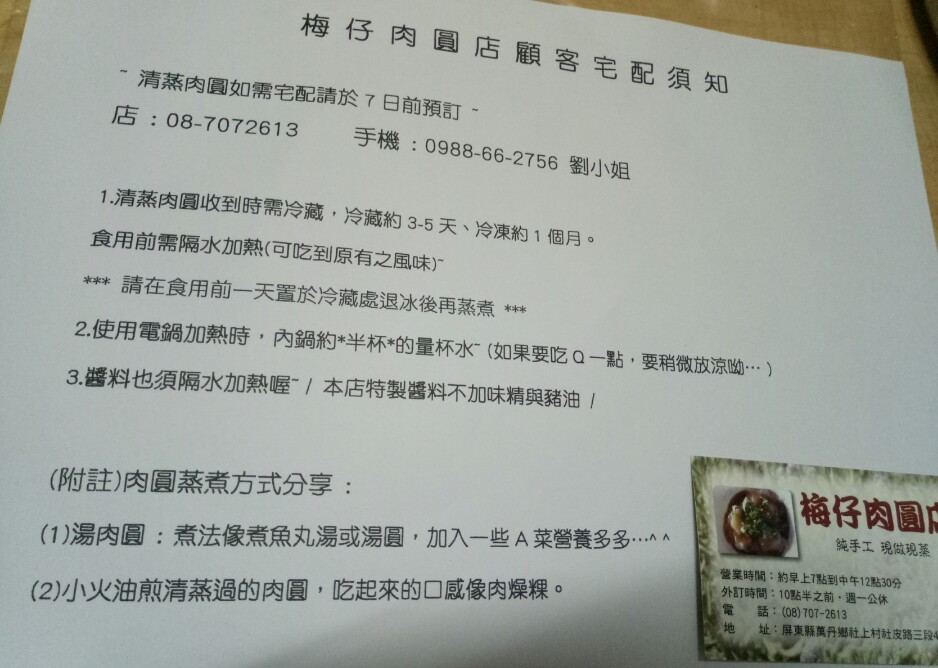 梅仔肉圓店顧客宅配須知
~ 清蒸肉圓如需宅配請於 7 日前預訂 ~
店：08-7072613 手機：0988-66-2756 劉小姐
1.清蒸肉圓收到時需冷藏，冷藏約 3-5 天、冷凍約 1 個月。
食用前需隔水加熱(可吃到原有之風味)~
*** 請在食用前一天置於冷藏處退冰後再蒸煮 ***
2.使用電鍋加熱時，內鍋約*半杯*的量杯水~ (如果要吃 Q 一點，要稍微放涼呦… )
3.醬料也須隔水加熱喔~ / 本店特製醬料不加味精與豬油 /
(附註)肉圓蒸煮方式分享：
(1)湯肉圓：煮法像煮魚丸湯或湯圓，加入一些 A 菜營養多多…^ ^
(2)小火油煎清蒸過的肉圓，吃起來的口感像肉燥粿。
梅仔肉圓店
純手工 現做現蒸
營業時間：約早上7點到中午12點30分
外訂時間：10點半之前，週一公休
電 話：(08)707-2613
地 址：屏東縣萬丹鄉社上村社皮路三段4